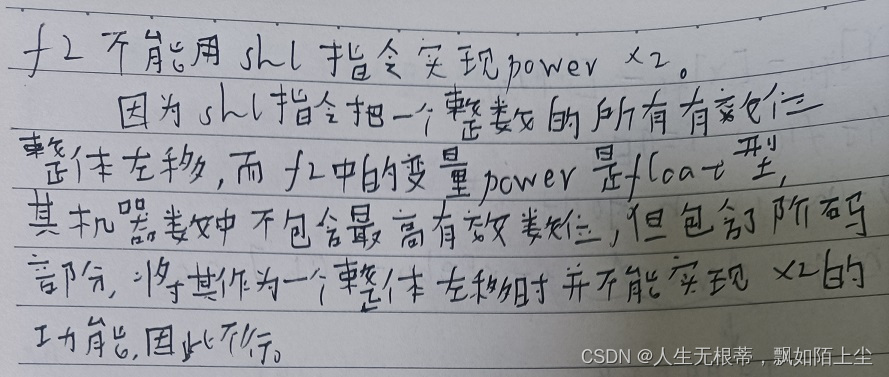 f2 不能用 shl 指令实现power ×2。
因为shl指令把一个整数的所有有效位
整体左移,而 f2中的变量power是float型,
其机器数中不包含最高有效数位,但包含了阶码
部分,将其作为一个整体左移时并不能实现 ×2的
功能,因此不行。
CSDN @人生无根蒂,飘如陌上尘